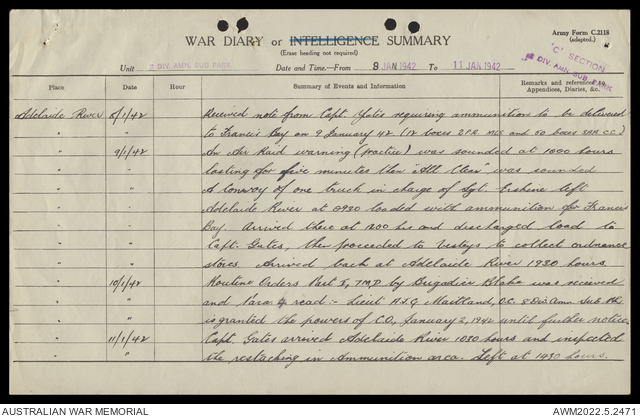 WAR DIARY or INTELLIGENCE SUMMARY
(Erase heading not required)
Army Form C.2118
(adapted.)
"C" SECTION
DIV. AMN. SUB PARK.
Unit DIV. AMN. SUB PARK. Date and Time—From 8 JAN 1942 To 11 JAN 1942
Place Date Hour Summary of Events and Information Remarks and references to Appendices, Diaries, &c.
Adelaide River 8/1/42 Received note from Capt. Gates requiring ammunition to be delivered
" " to Francis Bay on 9 January 42 (12 boxes and 50 boxes SAA CC)
" 9/1/42 An Air Raid warning (practice) was sounded at 1000 hours
" " lasting for five minutes then "All Clear" was sounded
" " A convoy of one truck in charge of Sgt. Erskine left
" " Adelaide River at 0930 loaded with ammunition for Francis
" " Bay. Arrived there at 1200 hrs and discharged load to
" " Capt. Gates, then proceeded to Vesteys to collect ordnance
" " stores. Arrived back at Adelaide River 1930 hours.
" 10/1/42 Routine Orders Part I, 7 M.D by Brigadier Blake was received
" " and Para 4 read - Lieut H.S.G Maitland, O.C. 8 Div Amn Sub Pk
" " is granted the powers of C.O, January 2, 1942 until further notice.
" 11/1/42 Capt. Gates arrived Adelaide River 1030 hours and inspected
" " the restacking in Ammunition area. Left at 1430 hours.
AUSTRALIAN WAR MEMORIAL
AWM2022.5.2471